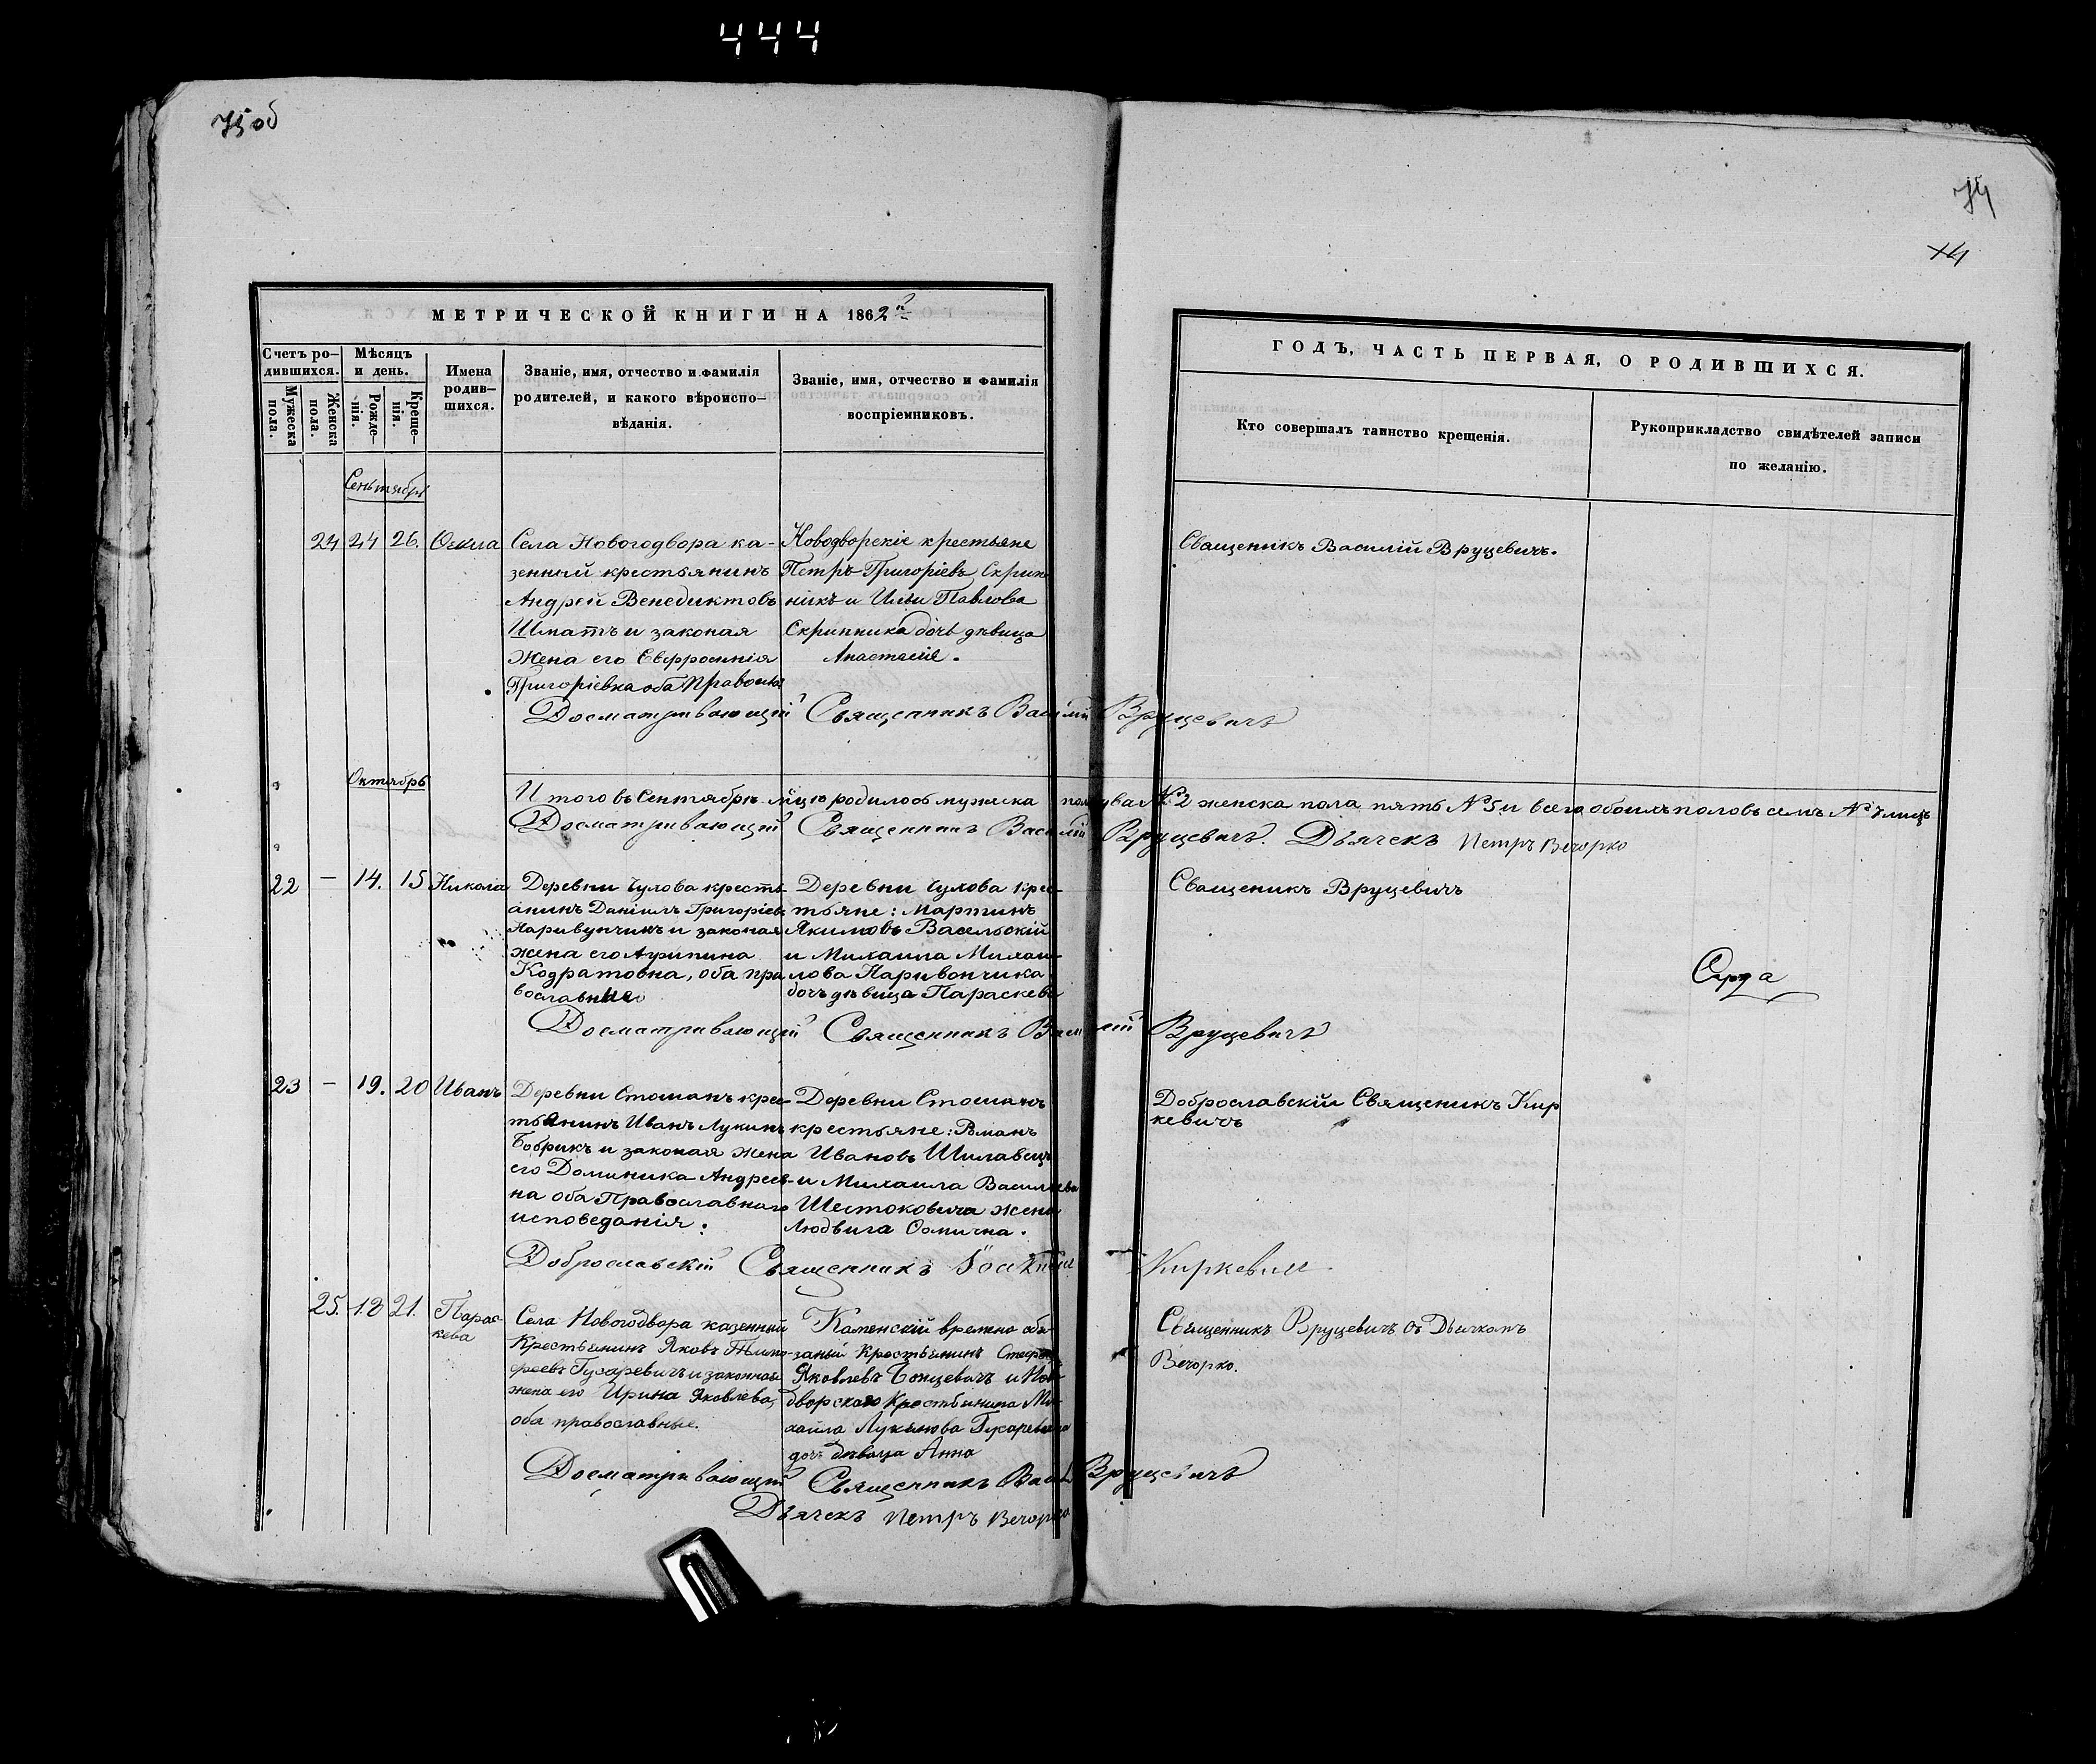 444
75 об
74
74
МЕТРИЧЕСКОЙ КНИГИ НА 1862й
Счетъ ро-
дившихся.
Мужеска
пола.
Женска
пола.
Мѣсяцъ
и день.
Рожде-
нія.
Креще-
нія.
Имена
родив-
шихся.
Званіе, имя, отчество и фамилія
родителей, и какого вѣроиспо-
вѣданія.
Званіе, имя, отчество и фамилія
воспріемниковъ.
ГОДЪ, ЧАСТЬ ПЕРВАЯ, О РОДИВШИХСЯ.
Кто совершалъ таинство крещенія.
Рукоприкладство свидѣтелей записи
по желанію.
Сентябрь
24 24 26.
Села Новогодвора ка-
зенный крестьянинъ
Андрей Венедиктовъ
Шматъ и законая
жена его Евфросинія
Григоріевна оба Правосла
Новодворскіе крестьяне
Петръ Григоріевъ Скрип
никъ и Ильи Павлова
Скрипника дочь дѣвица
Анастасія.
Священикъ Василій Вруцевичъ.
Досматривающій Священникъ Василій Вруцевичъ
Октябрь
Итого въ Сентябрѣ м-цѣ родилось мужеска пола два № 2 женска пола пять № 5 и всего обоихъ половъ семь № 7 лицъ
Досматривающій Священникъ Василій Вруцевичъ. Дьячекъ Петръ Вечорко
22 — 14. 15 Никола
Деревни Чулова кресть-
анинъ Даніилъ Григоріевъ
Наривунчикъ и законая
жена его Агрипина
Кодратовна, оба пра
вославные
Деревни Чулова крес-
тьяне: Мартинъ
Якимовъ Васельскій
и Михаила Михаи-
лова Наривончика
дочь дѣвица Параскева
Священикъ Вруцевичъ
Досматривающій Священникъ Василій Вруцевичъ
23 — 19. 20 Иванъ
Деревни Стошанъ крес-
тьянинъ Иванъ Лукинъ
Бобрикъ и законая жена
его Доминика Андреев-
на оба Православнаго
исповеданія.
Деревни Стошанъ
крестьяне: Романъ
Ивановъ Шилавецъ
и Михаила Васильева
Шестоковича жена
Людвига
Доброславскій Священикъ Кир
кевичъ
Доброславскій Священникъ Киркевичъ
25. 18 21. Парас-
кева
Села Новогодвора казенный
Крестьянинъ Яковъ Тимо-
феевъ Гусаревичъ и законная
жена его Ирина Яковлева,
оба православные.
Каменскій времено обя-
заный Крестьянинъ Стефанъ
Яковлевъ Бонцевичъ и Ново-
дворскаго Крестьянина Ми-
хаила Лукянова Гусаревича
дочь дѣвица Анна
Священникъ Вруцевичъ съ Дьячкомъ
Вечорко.
Досматривающій Священникъ Васил. Вруцевичъ
Дьячекъ Петръ Вечорко